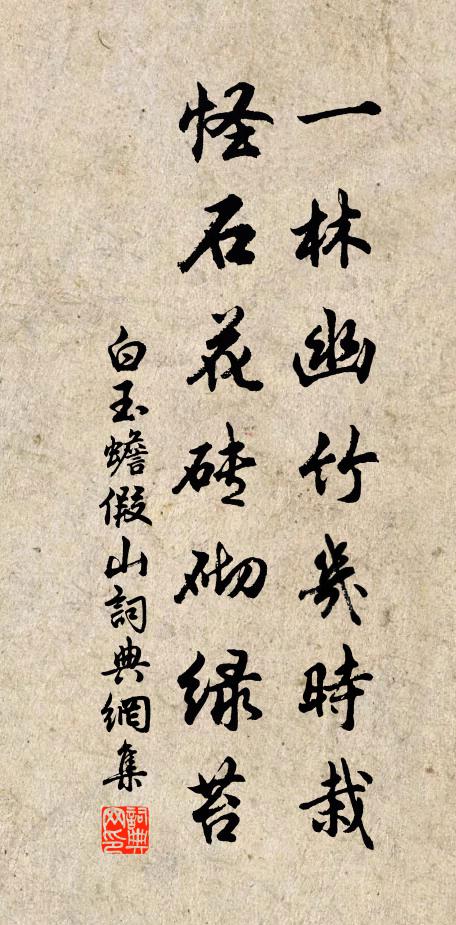 一林幽竹幾時栽
怪石花磚砌綠苔
白玉蟾假山詞典網集
詞典網印